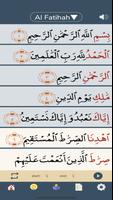 Al Fatihah▼
بِسْمِ ٱللَّهِ ٱلرَّحْمَٰنِ ٱلرَّحِيمِ
ٱلْحَمْدُ لِلَّهِ رَبِّ ٱلْعَٰلَمِينَ
ٱلرَّحْمَٰنِ ٱلرَّحِيمِ
مَٰلِكِ يَوْمِ ٱلدِّينِ
إِيَّاكَ نَعْبُدُ وَإِيَّاكَ نَسْتَعِينُ
ٱهْدِنَا ٱلصِّرَٰطَ ٱلْمُسْتَقِيمَ
صِرَٰطَ ٱلَّذِينَ أَنْعَمْتَ عَلَيْهِمْ